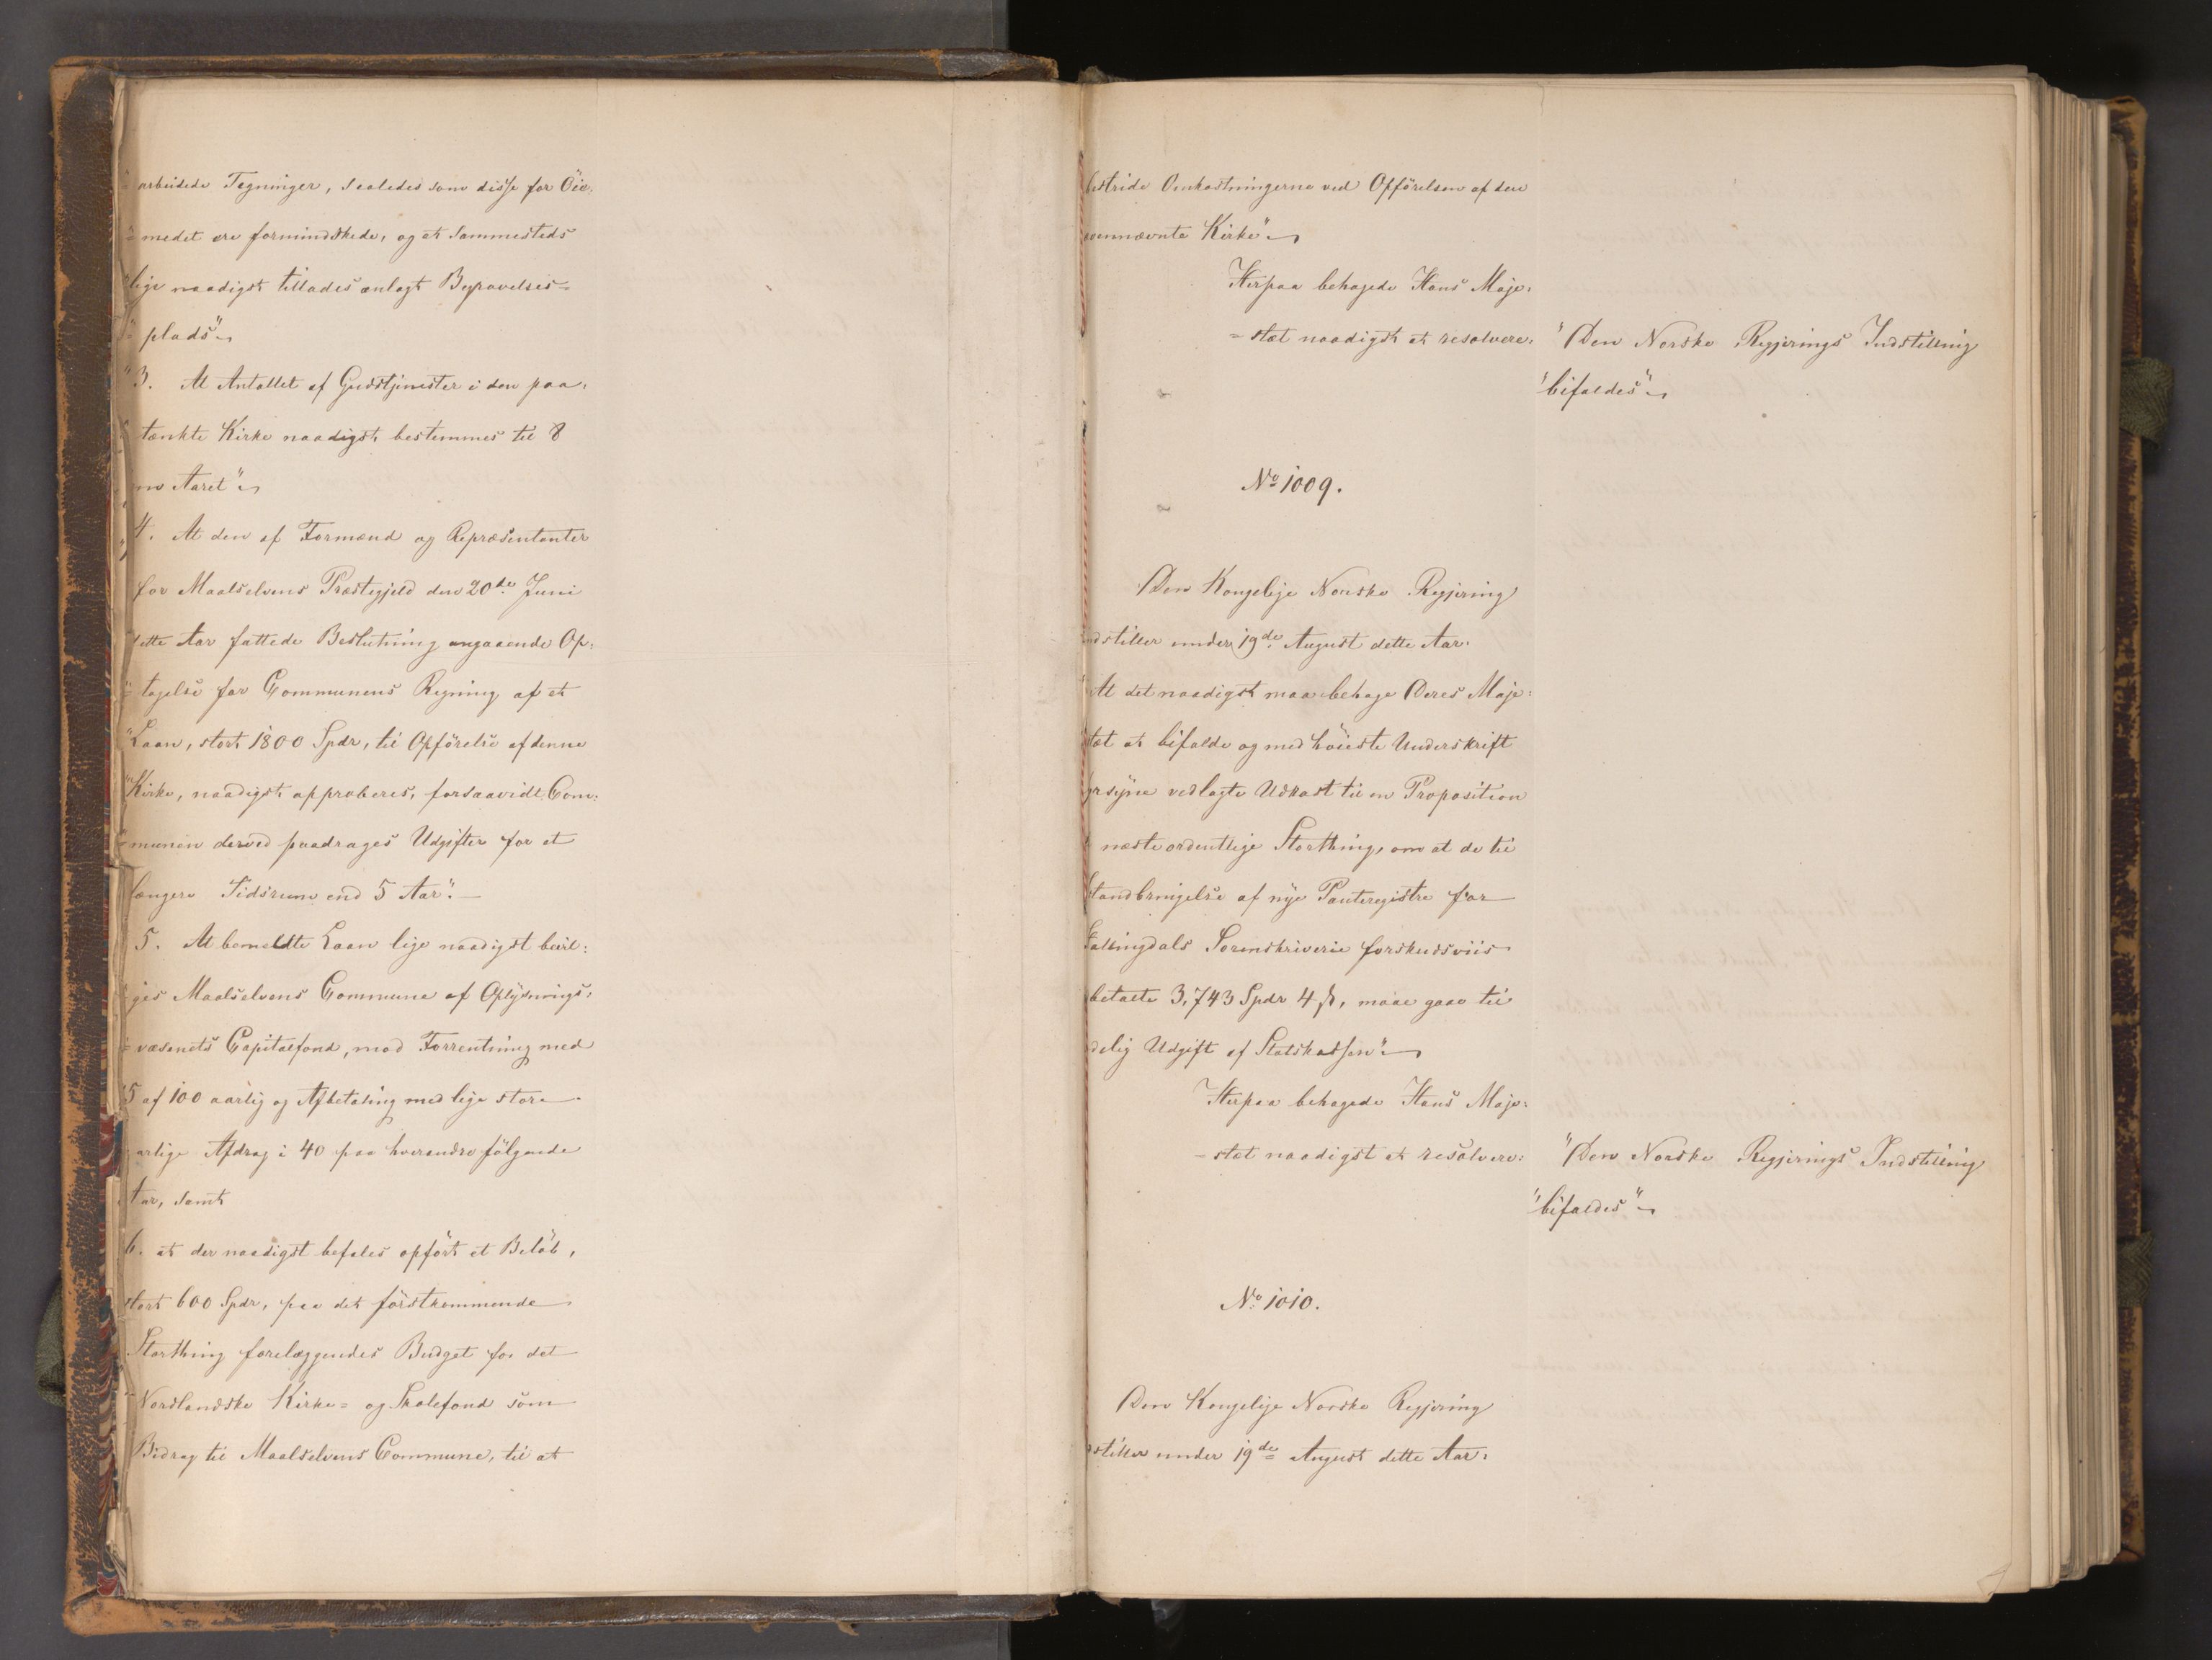 "arbeidede Tegninger, saaledes som disse for Öie-
"medet ere formindskede, og at sammesteds
"lige naadigst tillades anlagt Begravelses=
"plads"
"3. At Antallet af Gudstjenester i den paa-
tænkte Kirke naadigst bestemmes til 8
om Aaret"
"4. At den af Formænd og Repræsentanter
for Maalselvens Præstegjeld den 20de Juni
dette Aar fattede Beslutning angaaende Op-
"tagelse for Communens Regning af et
"Laan, stort 1800 Spdr, til Opförelse af denne
"Kirke, naadigst approberes, forsaavidt Com-
"munen derved paadrages Udgifter for et
længere Tidsrum end 5 Aar".
5. At bemeldte Laan lige naadigst bevil-
ges Maalselvens Commune af Oplysnings-
"væsenets Capitalfond, mod Forrentning med
"5 af 100 aarlig og Afbetaling med lige store
aarlige Afdrag i 40 paa hverandre fölgende
Aar, samt
6. at der naadigst befales opfört et Belöb,
stort 600 Spdr, paa det förstkommende
Storthing forelæggendes Budget for det
Nordlandske Kirke- og Skolefond som
Bidrag til Maalselvens Commune, til at
bestride Omkostningerne ved Opförelsen af den
ovennævnte Kirke"
Herpaa behagede Hans Maje-
=stæt naadigst at resolvere: "Den Norske Regjerings Indstilling
"bifaldes"
No 1009.
Den Kongelige Norske Regjering
indstiller under 19de August dette Aar.
"At det naadigst maa behage Deres Maje-
stæt at bifalde og med höieste Underskrift
forsyne vedlagte Udkast til en Proposition
næste ordentlige Storthing, om at de til
Istandbringelse af nye Panteregistre for
Hallingdals Sorenskriverie forskudsviis
betalte 3,743 Spdr 4 ß, maae gaae til
endelig Udgift af Statskassen"
Herpaa behagede Hans Maje-
=stæt naadigst at resolvere: "Den Norske Regjerings Indstilling
"bifaldes"
No 1010.
Den Kongelige Norske Regjering
indstiller under 19de August dette Aar.